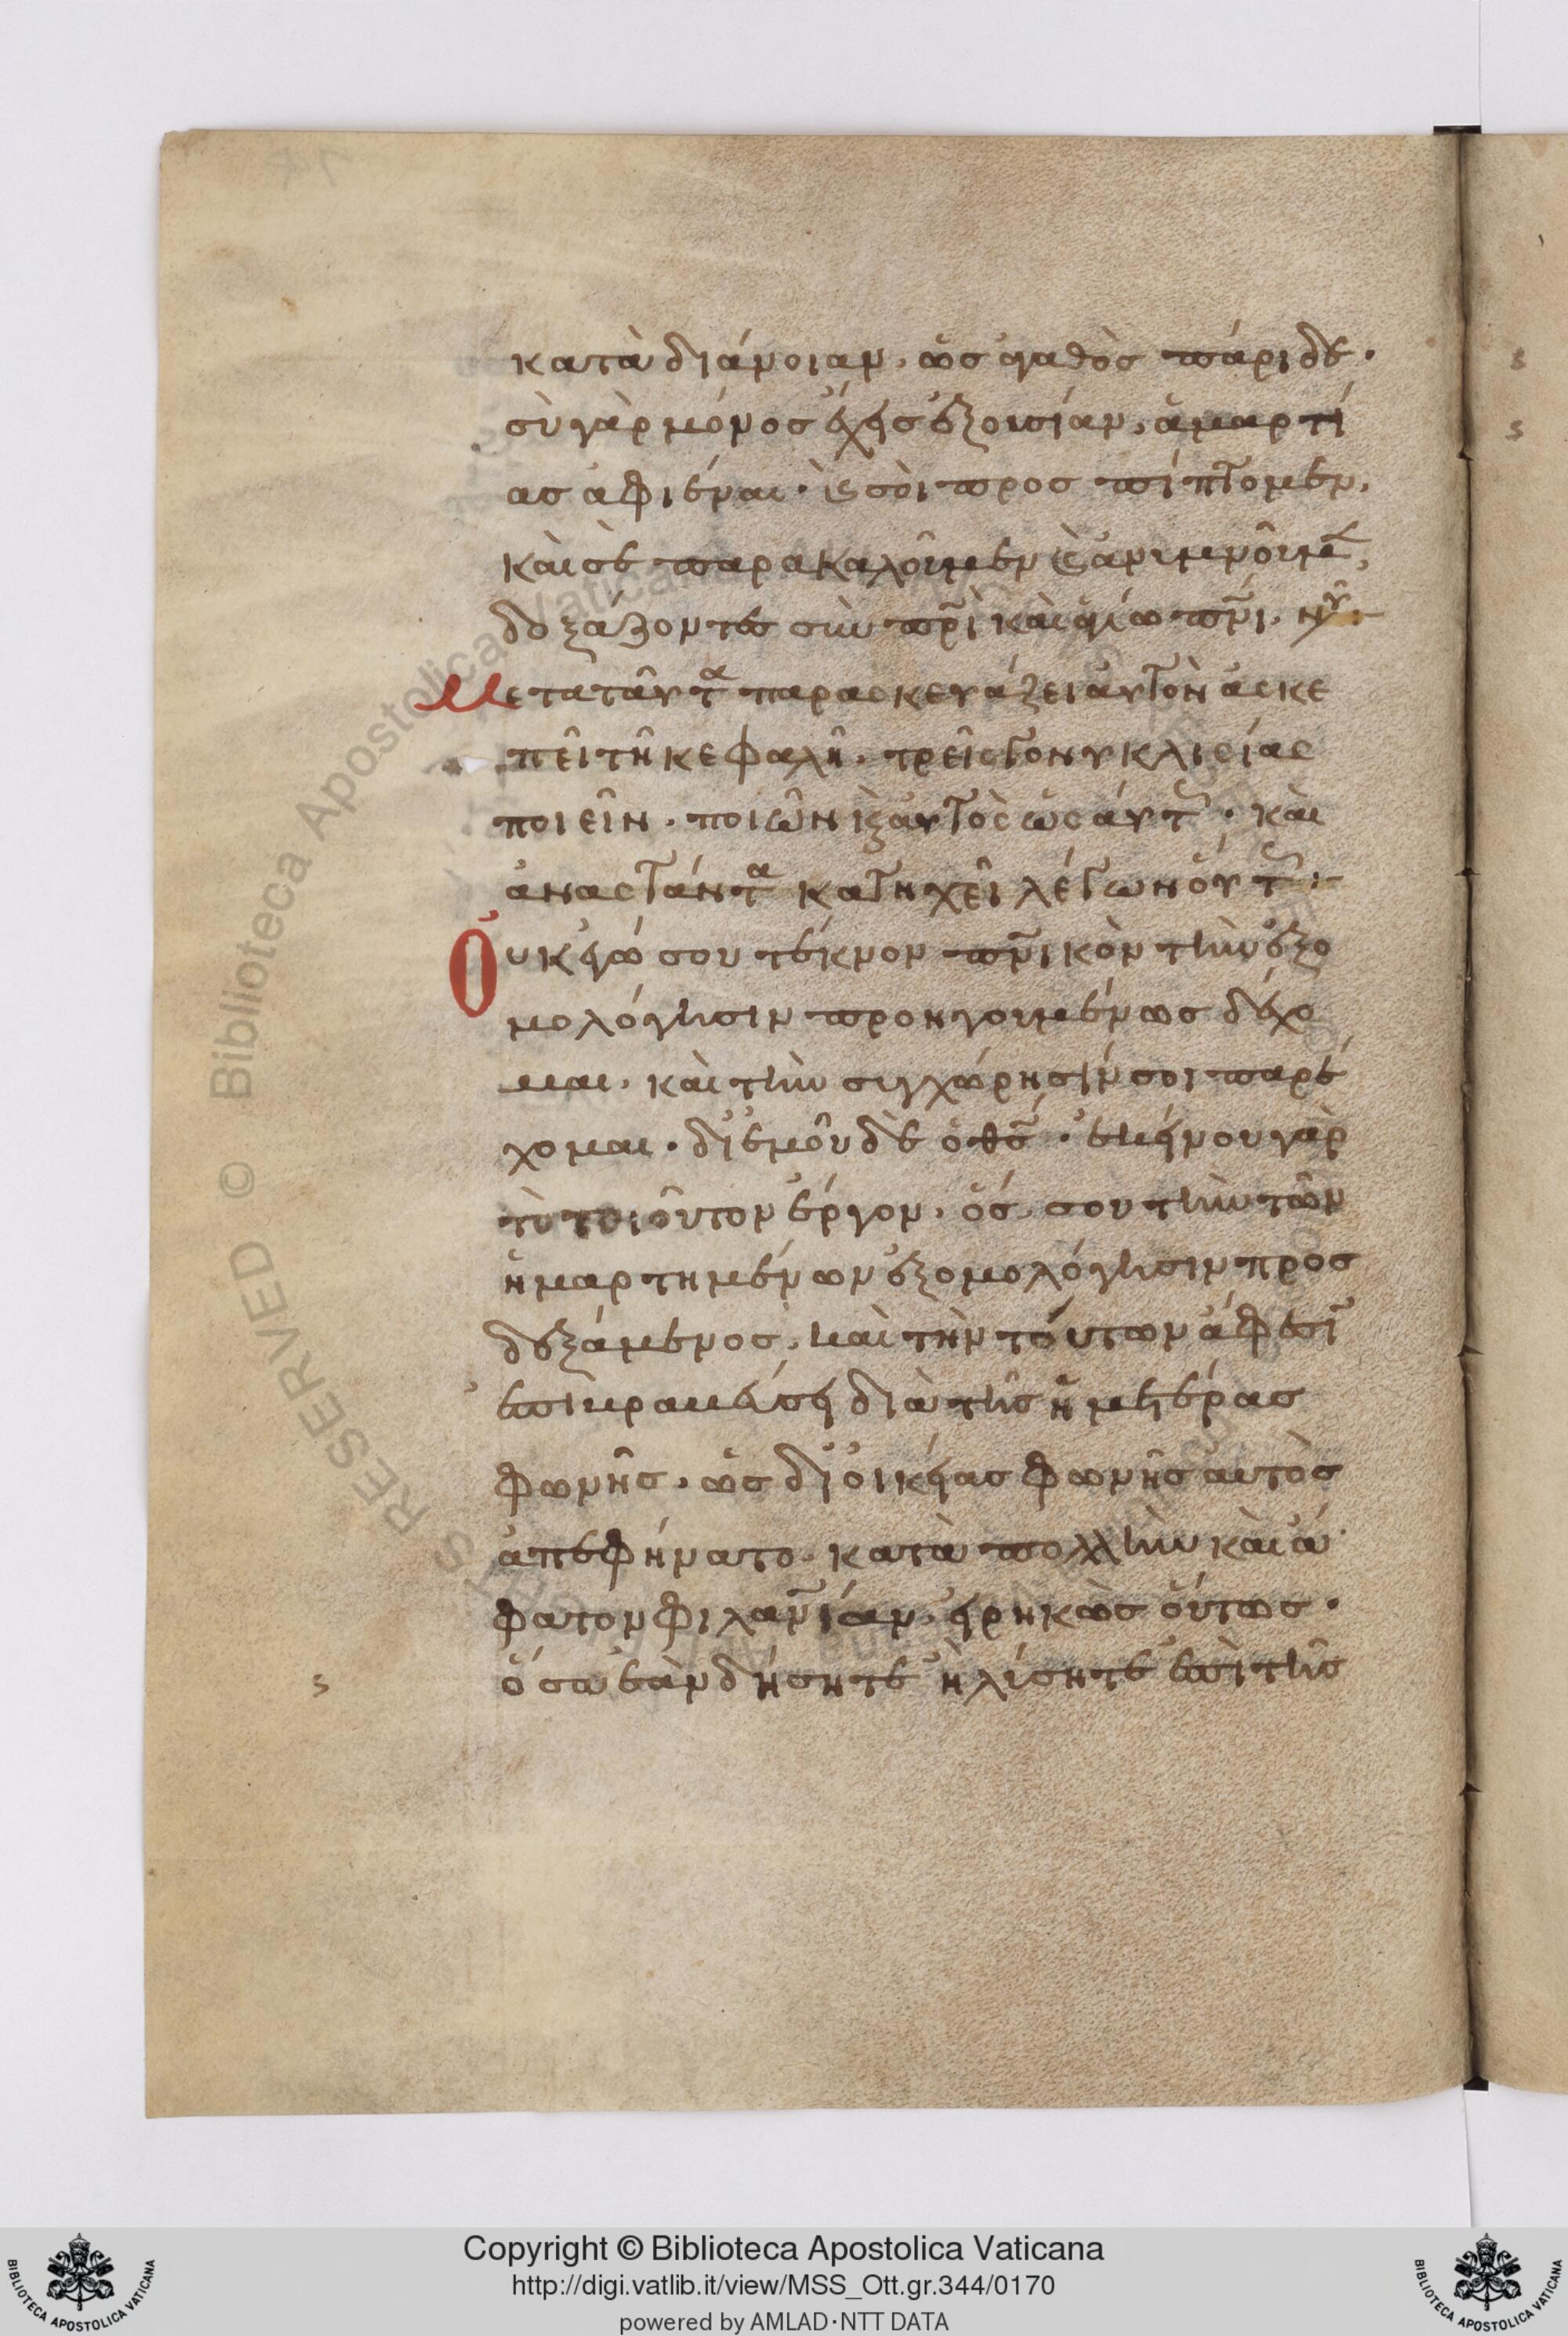 κατὰ διάνοιαν, ὡς ἀγαθὸς πάριδε·
σὺ γὰρ μόνος ἔχεις ἐξουσίαν, ἁμαρτί
ας ἀφιέναι· καὶ σοὶ προσπίπτομεν,
καὶ σὲ παρακαλοῦμεν καὶ ἀνυμνοῦμεν,
δοξάζοντες σὺν πρὶ καὶ ἁγίω πνὶ. νῦ:
Μετὰ ταῦτα παρασκευάζει αὐτὸν ἀσκε
πεῖ τῆ κεφαλῆ. τρεῖς γονυκλισίας
ποιεῖν. ποιῶν καὶ αὐτὸς ὡσαύτ. καὶ
ἀναστάντα κατηχεῖ λέγων οὕτ:
Οὐκ ἐγώ σου τέκνον πνικὸν τὴν ἐξο
μολόγησιν προηγουμένως δέχο
μαι. καὶ τὴν συγχώρησίν σοι παρέ
χομαι· δι' ἐμοῦ δὲ ὁ θς· ἐκείνου γὰρ
τὸ τοιοῦτον ἔργον. ὅς σου τὴν τῶν
ἡμαρτημένων ἐξομολόγησιν προσ
δεξάμενος, καὶ τὴν τούτων ἄφεσιν
διὰ τῆς ἡμετέρας
φωνῆς, ὡς δι' οἰκείας φωνῆς αὐτὸς
ἀπεφήνατο. κατὰ πολλὴν καὶ ἄ
φατον φιλανίαν, εἰρηκὼς οὕτως·
ὅσα ἐὰν δήσητε ἢ λύσητε ἐπὶ τῆς
Copyright © Biblioteca Apostolica Vaticana
http://digi.vatlib.it/view/MSS_Ott.gr.344/0170
powered by AMLAD·NTT DATA